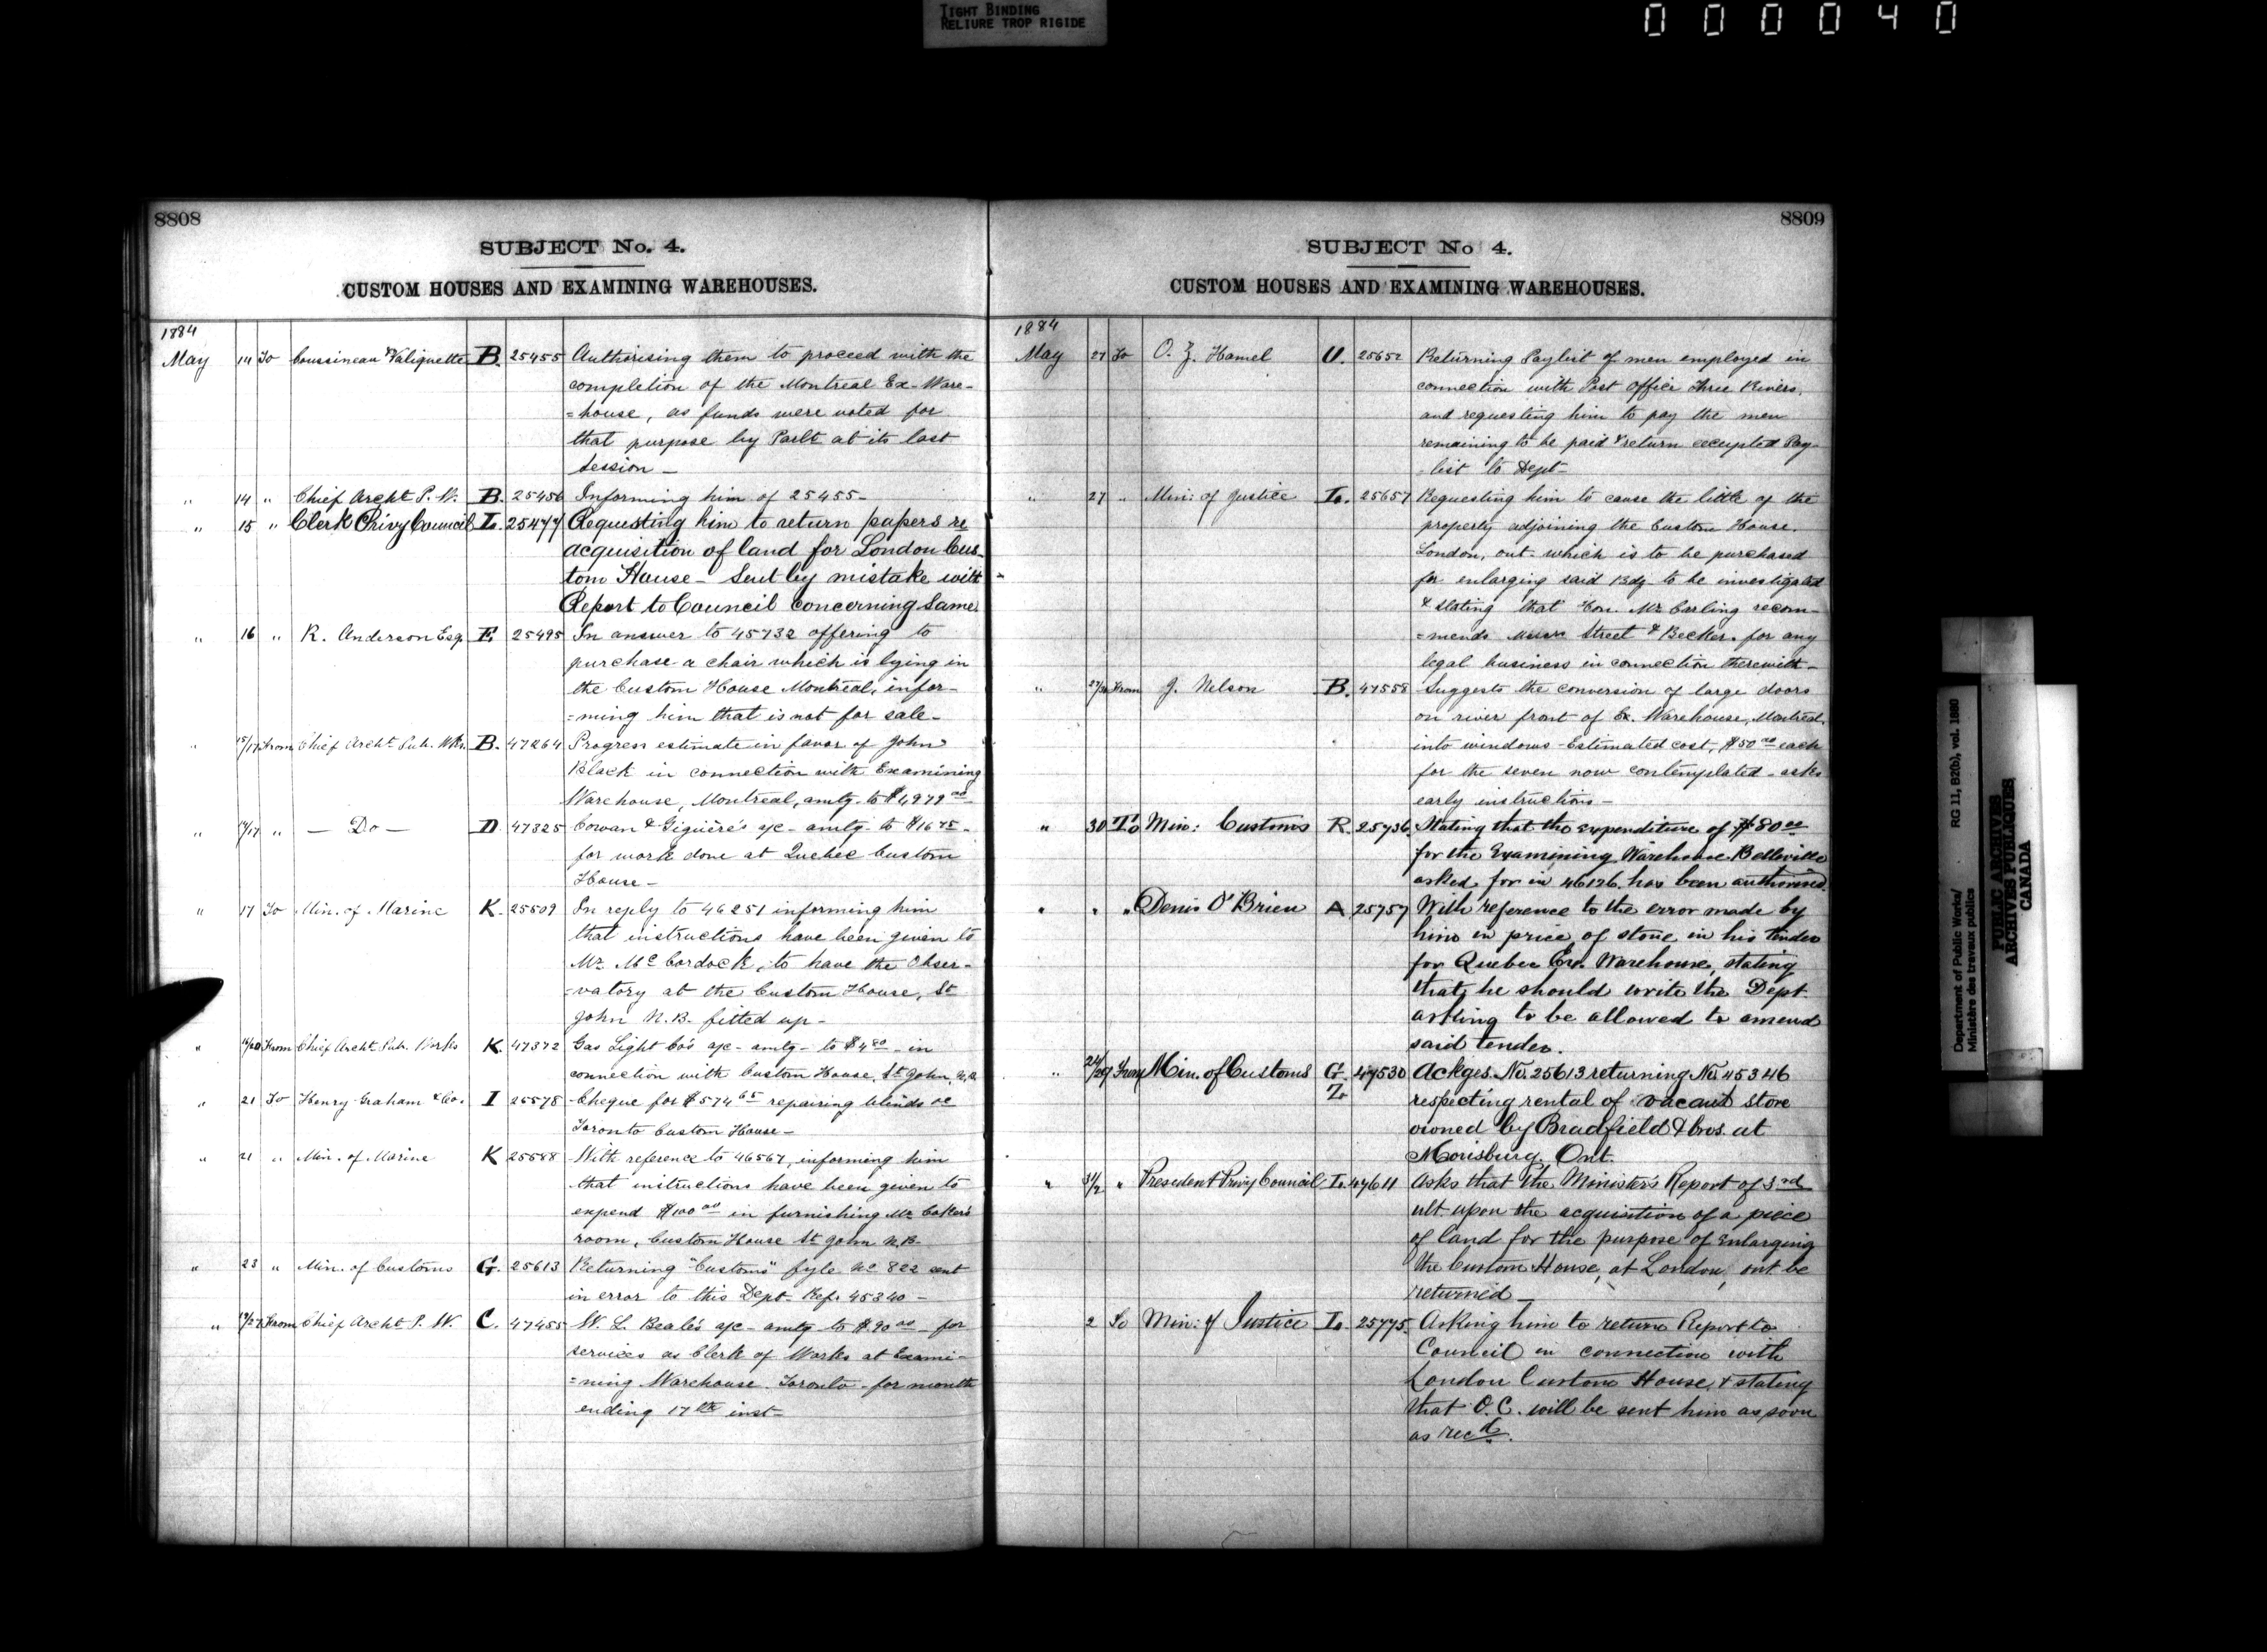 TIGHT BINDING
RELIURE TROP RIGIDE
000040
8808
SUBJECT No. 4.
CUSTOM HOUSES AND EXAMINING WAREHOUSES.
1884
May 14 To Coussineau & Valiquette B. 25455 Authorising them to proceed with the
completion of the Montreal Ex-Ware-
=house, as funds were voted for
that purpose by Parlt at its last
Session —
" 14 " Chief Archt P. W. B. 25456 Informing him of 25455 —
" 15 " Clerk Privy Council L. 25477 Requesting him to return papers re
acquisition of land for London Cus-
tom House — Sent by mistake with
Report to Council concerning same
" 16 " R. Anderson Esq. E. 25495 In answer to 45732 offering to
purchase a chair which is lying in
the Custom House Montreal, infor-
=ming him that is not for sale —
" 15/17 From Chief Archt Pub. Wks. B. 47264 Progress estimate in favor of John
Black in connection with Examining
Warehouse, Montreal, amtg. to $4979 00 —
" 14/17 " — Do — D 47325 Cowan & Giguère's a/c — amtg — to $16 75 —
for work done at Quebec Custom
House —
" 17 To Min. of Marine K. 25509 In reply to 46251 informing him
that instructions have been given to
Mr. McCordock, to have the Obser-
=vatory at the Custom House, St
John N.B. fitted up —
" 16/20 From Chief Archt Pub. Works K. 47372 Gas Light Co's a/c — amtg — to $4 80 — in
connection with Custom House, St John, N.B.
" 21 To Henry Graham & Co. I 25578 Cheque for $574 65 repairing blinds
Toronto Custom House —
" 21 " Min. of Marine K 25588 With reference to 46567, informing him
that instructions have been given to
expend $100 00 in furnishing Mr
room, Custom House St John N.B.
" 23 " Min. of Customs G. 25613 Returning "Customs" fyle No 822 sent
in error to this Dept — Ref. 45340 —
" 19/27 From Chief Archt P. W. C. 47455 W. L. Beale's a/c — amtg to $90 00 — for
services as Clerk of Works at Exami-
=ning Warehouse Toronto — for month
ending 17th inst —
8809
SUBJECT No 4.
CUSTOM HOUSES AND EXAMINING WAREHOUSES.
1884
May 27 To O. Z. Hamel U. 25652 Returning Paylist of men employed in
connection with Post Office Three Rivers,
and requesting him to pay the men
remaining to be paid & return Pay-
list to Dept —
" 27 " Min: of Justice L. 25657 Requesting him to cause the tittle of the
property adjoining the Custom House.
London, ont. which is to be purchased
for enlarging said Bdg. to be investigated
& stating that Hon. Mr Carling recom-
=mends Messrs Street & Becker. for any
legal business in connection therewith —
" 27/30 From J. Nelson B. 47558 Suggests the conversion of large doors
on river front of Ex. Warehouse, Montreal,
into windows — Estimated cost, $50 00 each
for the seven now contemplated — asks
early instructions —
" 30 To Min: Customs R. 25736 Stating that the expenditure of $80 00
for the Examining Warehouse Belleville
asked for in 46126. has been authorised.
" " " Denis O'Brien A 25757 With reference to the error made by
him in price of stone in his tender
for Quebec Ex. Warehouse, stating
that, he should write the Dept.
asking to be allowed to amend
said tender.
" 24/29 From Min. of Customs G. 47530 Ackges. No. 25613 returning No. 45346
Z. respecting rental of vacant store
owned by Bradfield & bros. at
Morisburg. Ont.
" 31/2 " President Privy Council L. 47611 Asks that the Minister's Report of 3rd
ult. upon the acquisition of a piece
of land for the purpose of enlarging
the Custom House, at London, ont be
returned —
2 To Min: of Justice L. 25775. Asking him to return Report to
Council in connection with
London Custom House, & stating
that O. C. will be sent him as soon
as recd.
Department of Public Works/
Ministère des travaux publics
RG 11, B2(b), vol. 1880
PUBLIC ARCHIVES
ARCHIVES PUBLIQUES
CANADA